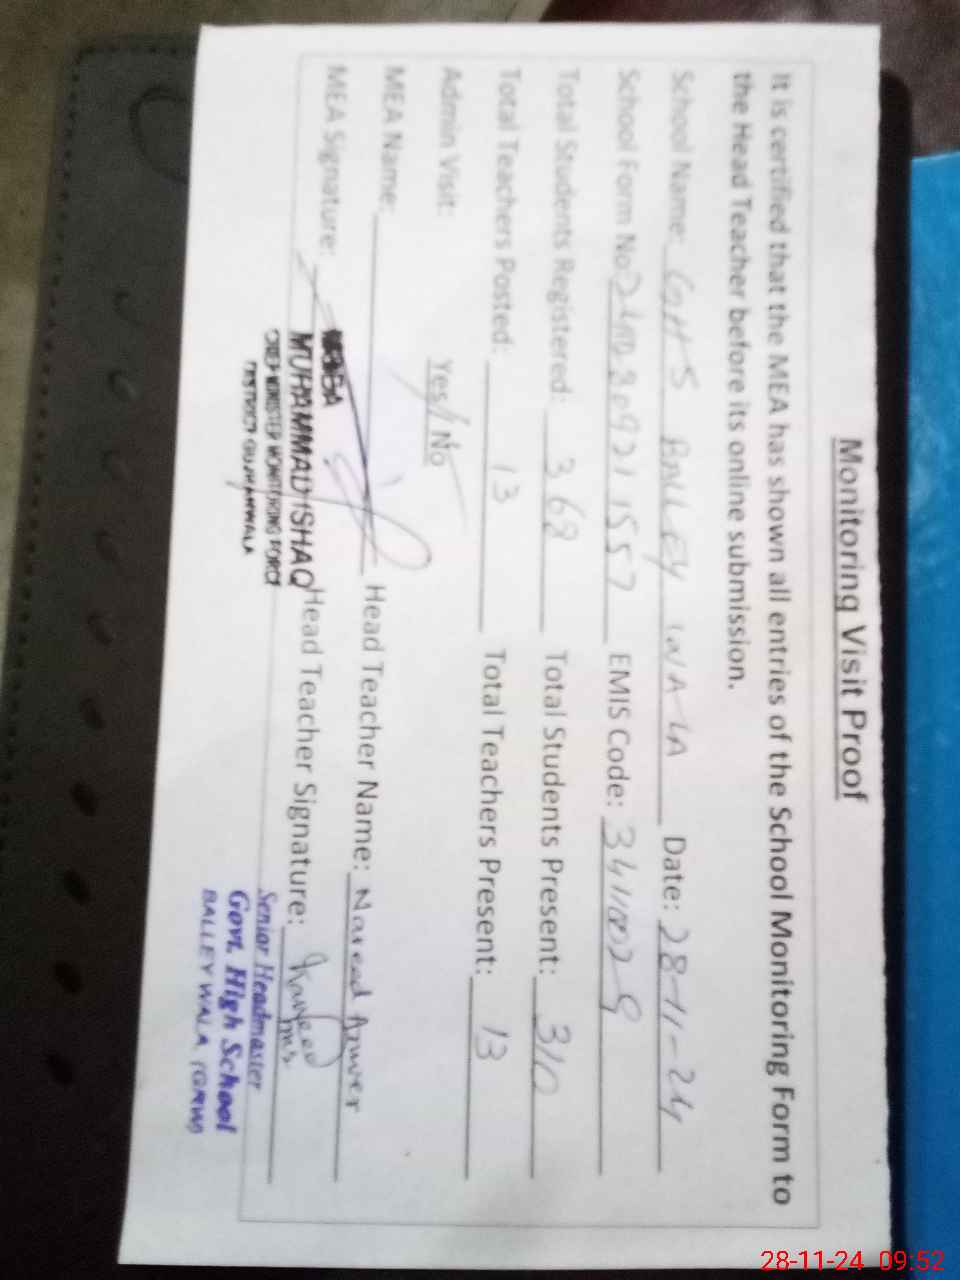 Monitoring Visit Proof
It is certified that the MEA has shown all entries of the School Monitoring Form to
the Head Teacher before its online submission.
School Name: GHS BALLEY WALA Date: 28-11-24
School Form No. EMIS Code:
Total Students Registered: 368 Total Students Present: 310
Total Teachers Posted: 13 Total Teachers Present: 13
Admin Visit: Yes/No
MEA Name: Head Teacher Name: Naveed Anwer
MEA Signature: Head Teacher Signature: Naveed
MUHAMMAD ISHAQ
CHIEF MINISTER MONITORING FORCE
DISTRICT GUJRANWALA
Senior Headmaster
Govt. High School
BALLEY WALA (GRW)
28-11-24 09:52